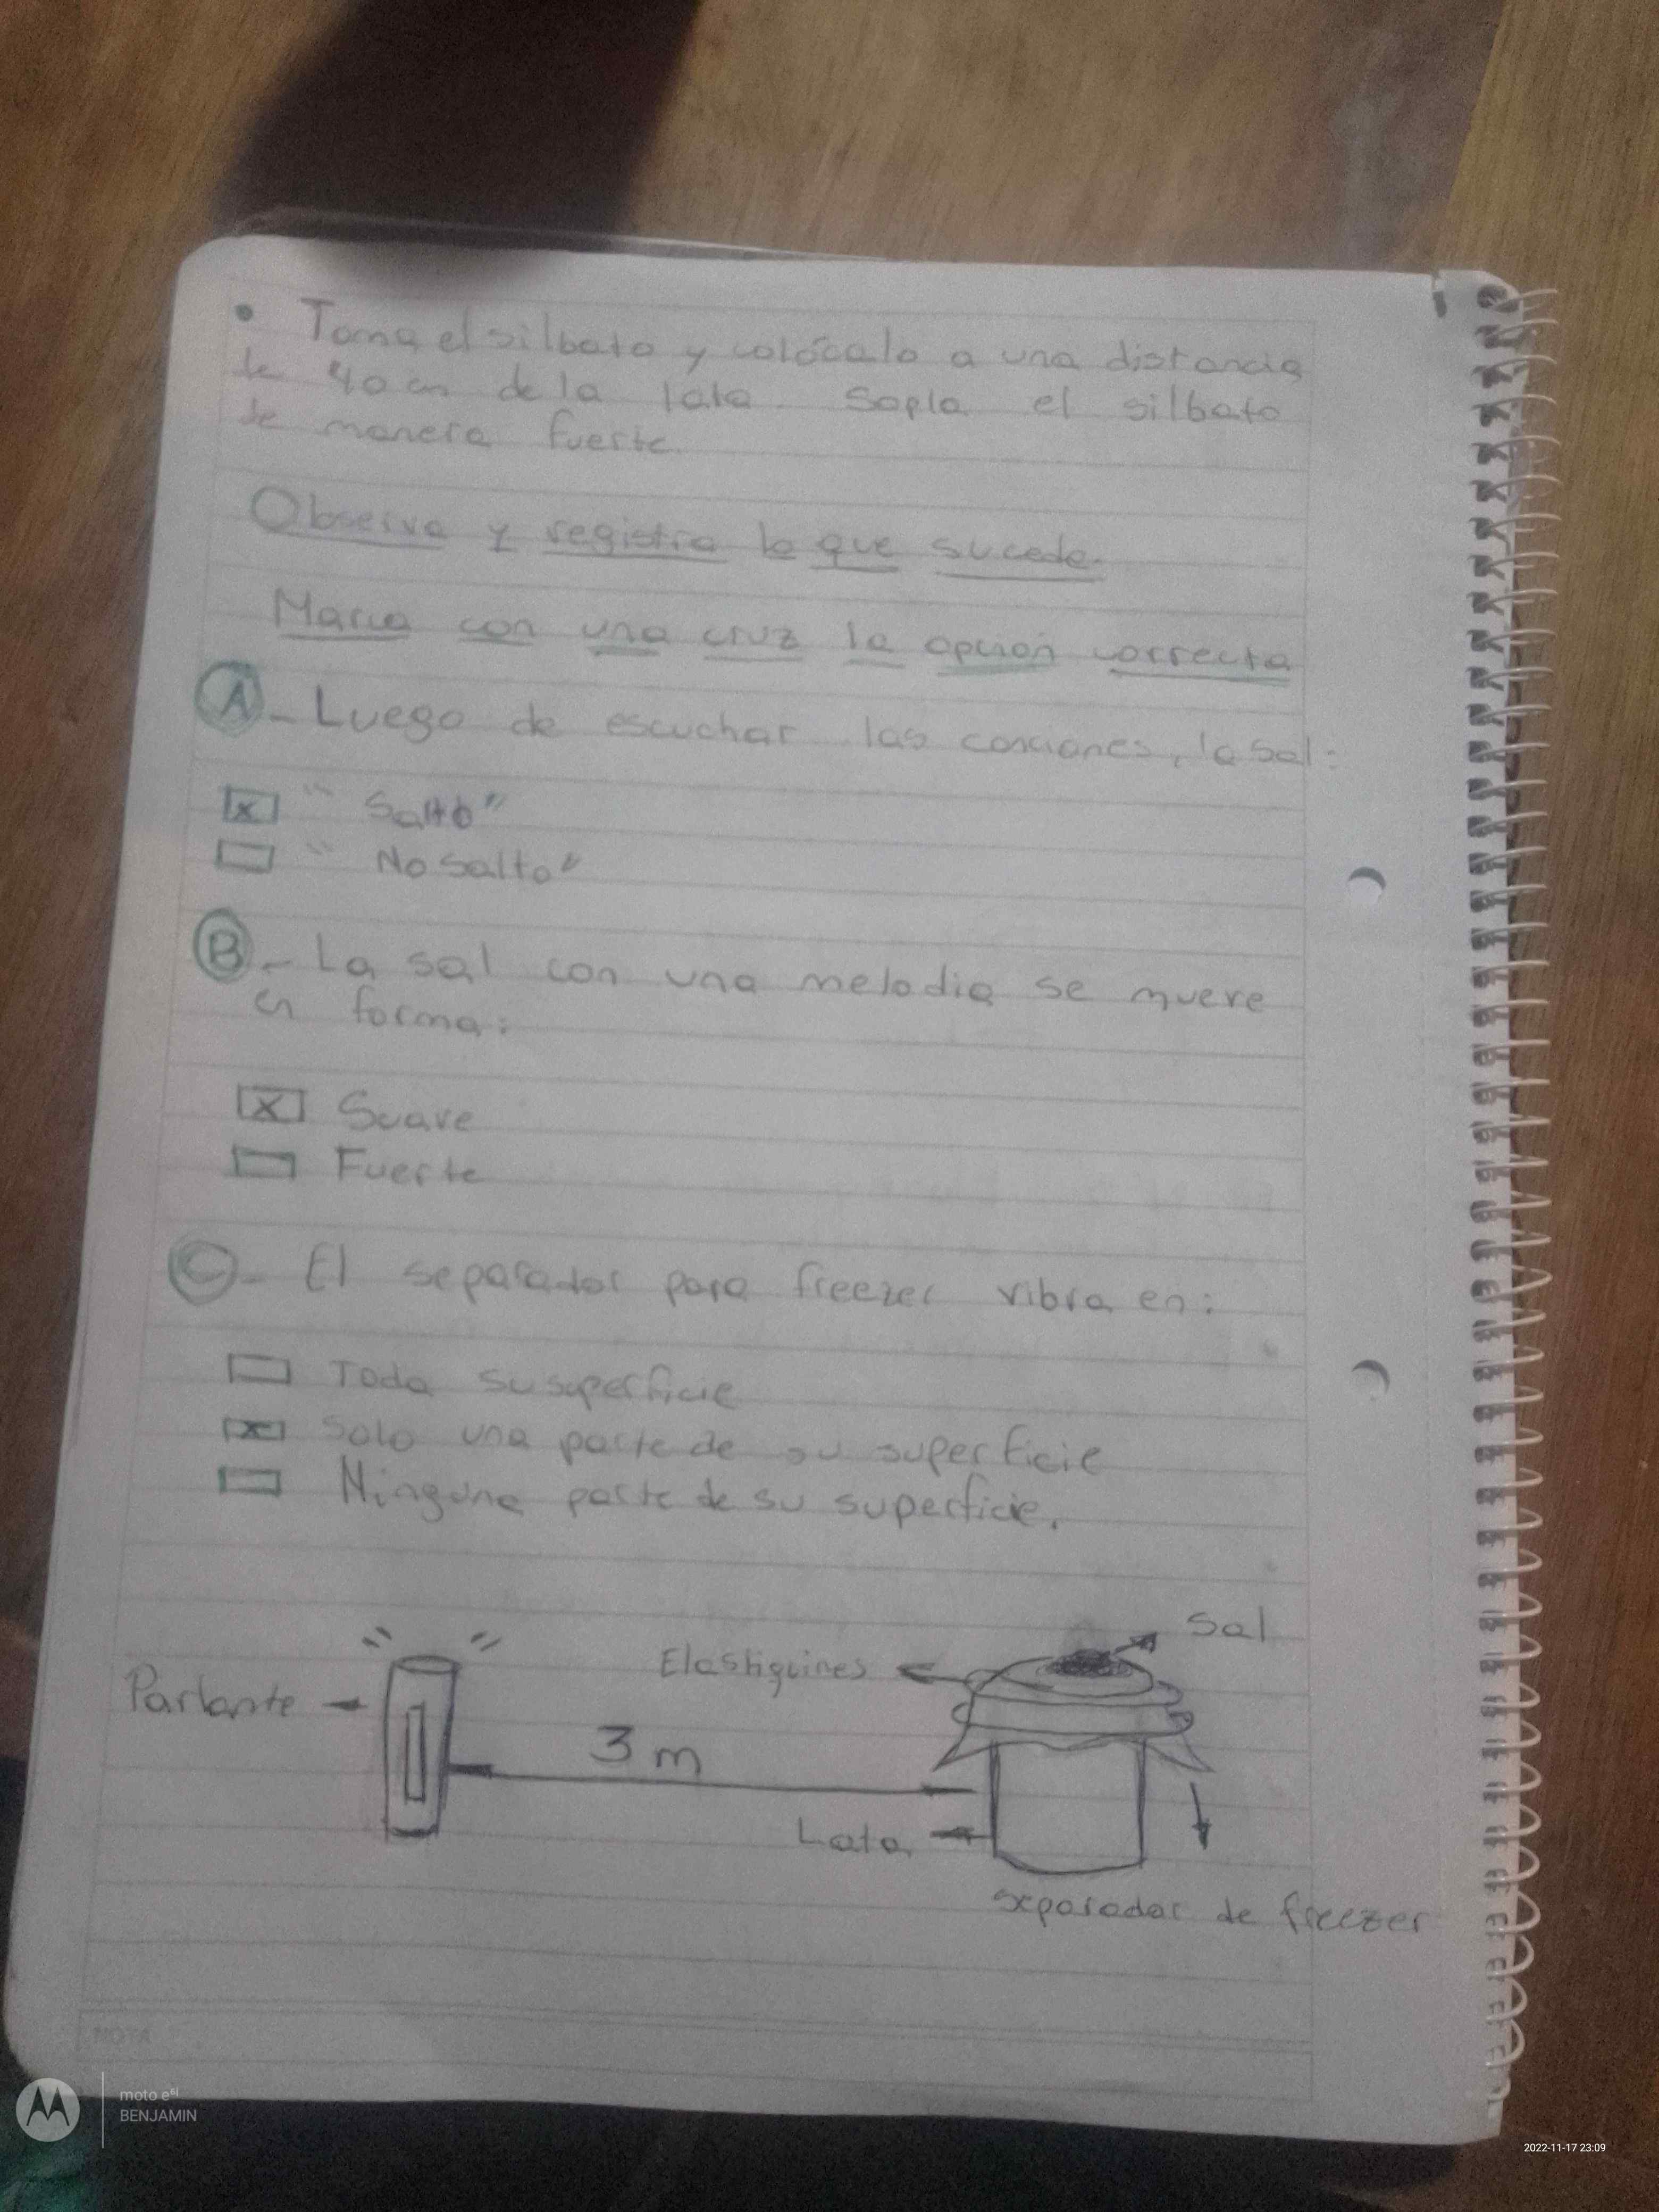 • Toma el silbato y colócalo a una distancia
de 40 cm de la lata sopla el silbato
de manera fuerte.
Observa y registra lo que sucede.
Marca con una cruz la opción correcta
A - Luego de escuchar las canciones, la sal:
x "Saltó"
"No salto"
B - La sal con una melodia se mueve
en forma:
x Suave
Fuerte
C - El separador para freezer vibra en:
Toda su superficie
x Solo una parte de su superficie
Ninguna parte de su superficie.
Sal
Elastiquines
Parlante
3 m
Lata
separador de freezer
NOTA
moto e6i
BENJAMIN
2022-11-17 23:09